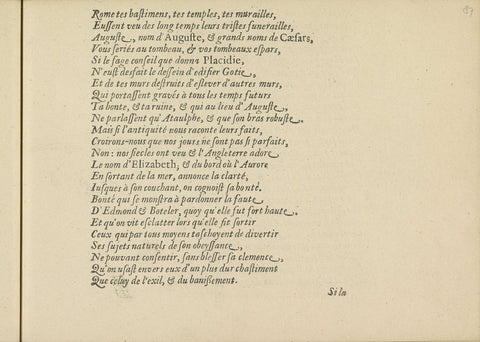 Rome tes bastimens, tes temples, tes murailles,
Eussent veu des long temps leurs tristes funerailles,
Auguste, nom d'Auguste, & grands noms de Cæsars,
Vous seriés au tombeau, & vos tombeaux espars,
Si le sage conseil que donna Placidie,
N'eust desfait le dessein d'edifier Gotie,
Et de tes murs destruits d'eslever d'autres murs,
Qui portassent gravés à tous les temps futurs
Ta honte, & ta ruine, & qui au lieu d'Auguste,
Ne parlassent qu'Ataulphe, & que son bras robuste.
Mais si l'antiquité nous raconte leurs faits,
Croirons-nous que nos jours ne sont pas si parfaits,
Non: nos siecles ont veu & l'Angleterre adore
Le nom d'Elizabeth, & du bord où l'Aurore
En sortant de la mer, annonce la clarté,
Iusques à son couchant, on cognoist sa bonté.
Bonté qui se monstra à pardonner la faute
D'Edmond & Boteler, quoy qu'elle fut fort haute.
Et qu'on vit esclatter lors qu'elle fit sortir
Ceux qui par tous moyens taschoyent de divertir
Ses sujets naturels de son obeyssance,
Ne pouvant consentir, sans blesser sa clemence,
Qu'on usast envers eux d'un plus dur chastiment
Que celuy de l'exil, & du banissement.
Si la